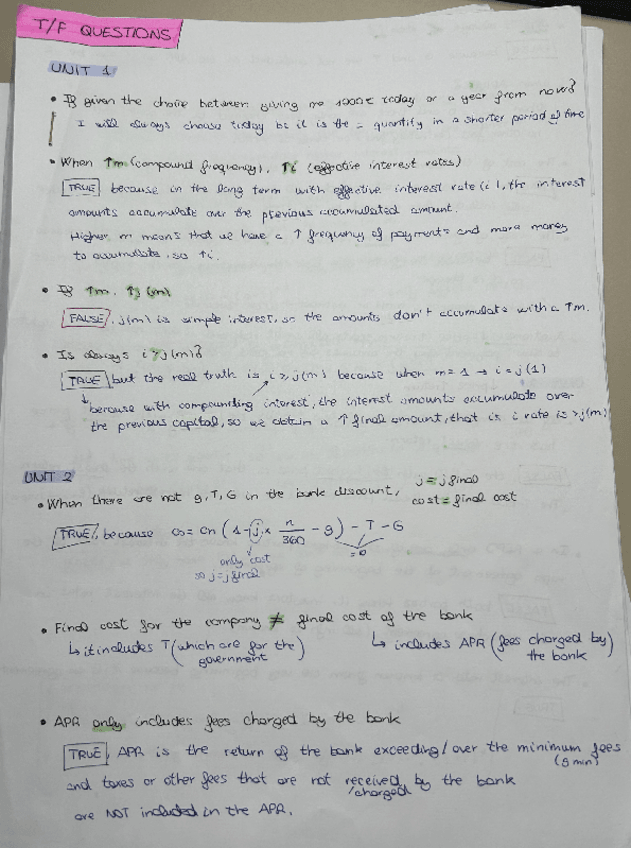 T/F QUESTIONS
UNIT 1
• If given the choice between giving me 1000€ today or a year from now?
I will always choose today bc it is the = quantity in a shorter period of time
• When ↑m (compound frequency), ↑i (effective interest rates)
TRUE because in the long term with effective interest rate (i), the interest
amounts accumulate over the previous accumulated amount.
Higher m means that we have a ↑ frequency of payments and more money
to accumulate, so ↑i.
• If ↑m, ↑j(m)
FALSE, j(m) is simple interest, so the amounts don't accumulate with a ↑m.
• Is always i > j(m)?
TRUE but the real truth is i ≥ j(m) because when m=1 → i = j(1)
↓ because with compounding interest, the interest amounts accumulate over
the previous capital, so we obtain a ↑ final amount, that is i rate is > j(m)
UNIT 2
• When there are not g, T, G in the bank discount, j = j final
cost = final cost
TRUE, because Co = Cn (1 - j × n/360 - g) - T - G
only cost = 0
so j = j final
• Final cost for the company ≠ final cost of the bank
↳ it includes T (which are for the government) ↳ includes APR (fees charged by the bank)
• APR only includes fees charged by the bank
TRUE, APR is the return of the bank exceeding / over the minimum fees
(g min)
and taxes or other fees that are not received by the bank
/charged
are NOT included in the APR.